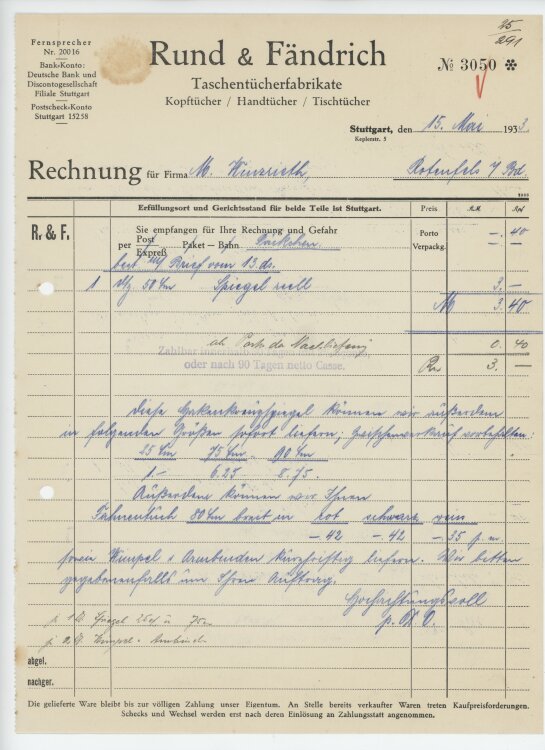 25
291
Fernsprecher
Nr. 20016
Bank-Konto:
Deutsche Bank und
Discontogesellschaft
Filiale Stuttgart
Postscheck-Konto
Stuttgart 15258
Rund & Fändrich
Taschentücherfabrikate
Kopftücher / Handtücher / Tischtücher
№ 3050 ✻
Stuttgart, den 15. Mai 1933.
Keplerstr. 5
Rechnung für Firma M. Rotenfels / Bd.
Erfüllungsort und Gerichtsstand für beide Teile ist Stuttgart. Preis R.M. Rpf
R. & F.
Sie empfangen für Ihre Rechnung und Gefahr
per Post Expreß Paket – Bahn Päckchen.
Porto Verpackg. –. 40
Brief vom 13. ds.
1 Dtz 50 Cm Spiegel 3. –
M 3. 40
ab Porto da Nachlieferung 0. 40
oder nach 90 Tagen netto Casse.
Rm 3. –
Diese Hakenkreuzspiegel können wir außerdem
in folgenden Größen sofort liefern, Zwischenverkauf vorbehalten:
25 Cm 75 Cm 90 Cm
1.– 6.25 8.75.
Außerdem können wir Ihnen
Fahnentuch 80 Cm breit in rot schwarz
–42 –42 –35 p. m.
sowie Wimpel & Armbinden kurzfristig liefern. Wir bitten
gegebenenfalls um Ihren Auftrag.
Hochachtungsvoll
abgel.
nachger.
Die gelieferte Ware bleibt bis zur völligen Zahlung unser Eigentum. An Stelle bereits verkaufter Waren treten Kaufpreisforderungen.
Schecks und Wechsel werden erst nach deren Einlösung an Zahlungsstatt angenommen.